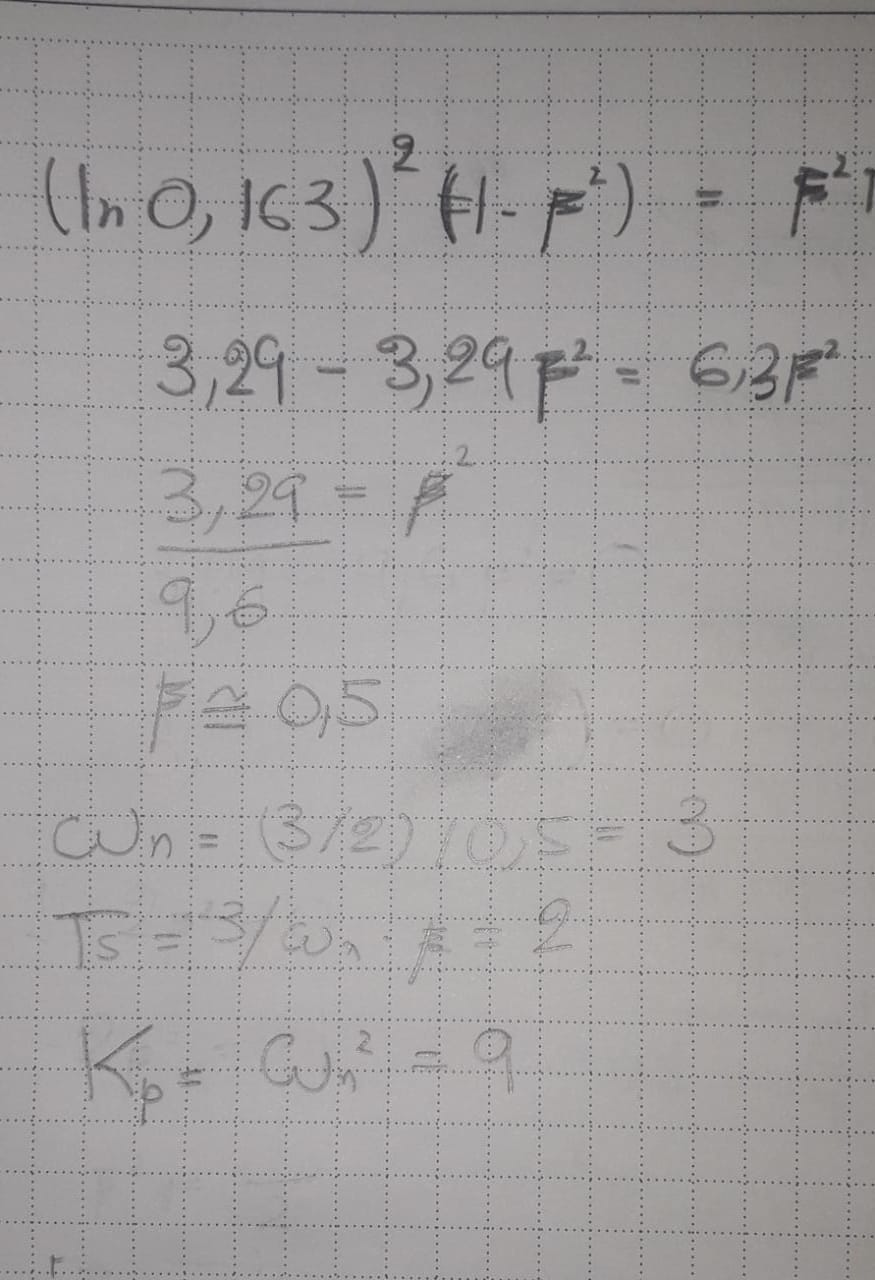 (ln 0,163)² (1 - ξ²) = ξ²
3,29 - 3,29 ξ² = 6,3 ξ²
3,29 = ξ²
9,6
ξ ≅ 0,5
ωn = (3/2) / 0,5 = 3
Ts = 3/ωn · ξ = 2
Kp = ωn² = 9